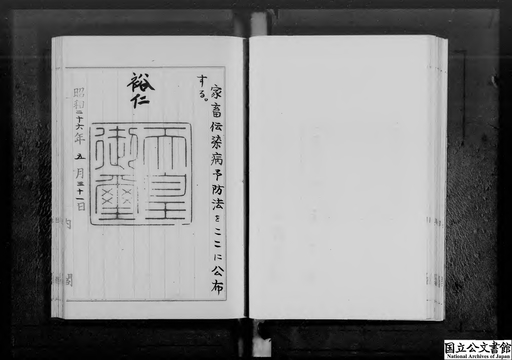 家畜伝染病予防法をここに公布
する。
裕仁
天皇
御璽
昭和二十六年五月三十一日
内閣
国立公文書館
National Archives of Japan